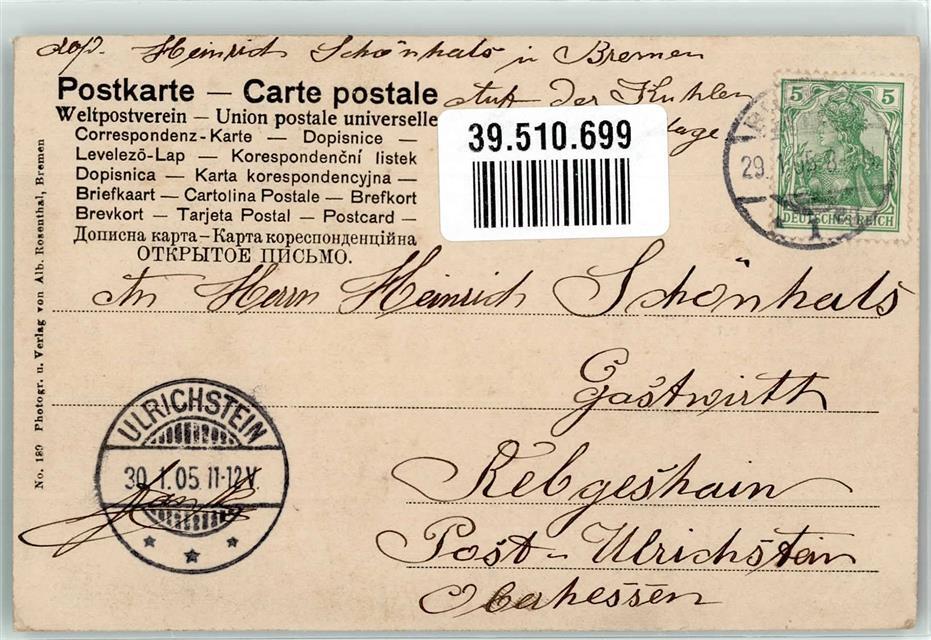 Heinrich Schönhals in Bremen
Auf der Kuhlen
lage
Postkarte — Carte postale
Weltpostverein — Union postale universelle
Correspondenz-Karte — Dopisnice —
Levelező-Lap — Korespondenční listek
Dopisnica — Karta korespondencyjna —
Briefkaart — Cartolina Postale — Brefkort
Brevkort — Tarjeta Postal — Postcard —
Дописна карта — Карта кореспонденційна
ОТКРЫТОЕ ПИСЬМО.
39.510.699
5 5
DEUTSCHES REICH
29.1.05.8
An Herrn Heinrich Schönhals
Gastwirth
Rebgeshain
Post-Ulrichstein
Oberhessen
ULRICHSTEIN
30.1.05.11-12V.
No. 189 Photogr. u. Verlag von Alb. Rosenthal, Bremen